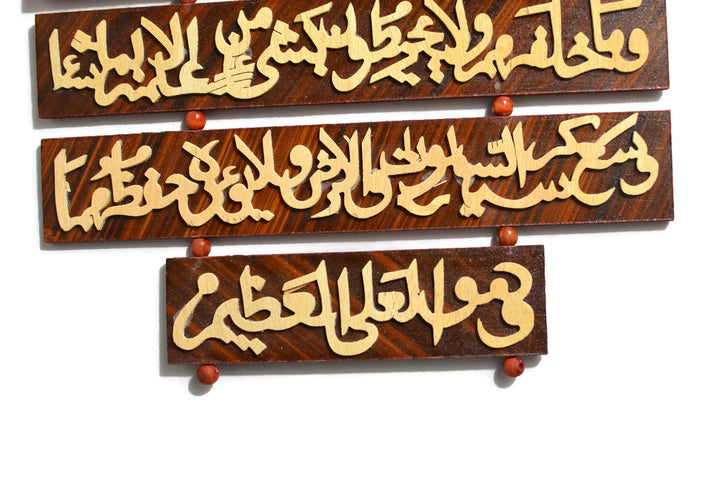 وما خلفهم ولا يحيطون بشىء من علمه الا بما شاء
وسع كرسيه السماوات والارض ولا يؤده حفظهما
وهو العلى العظيم